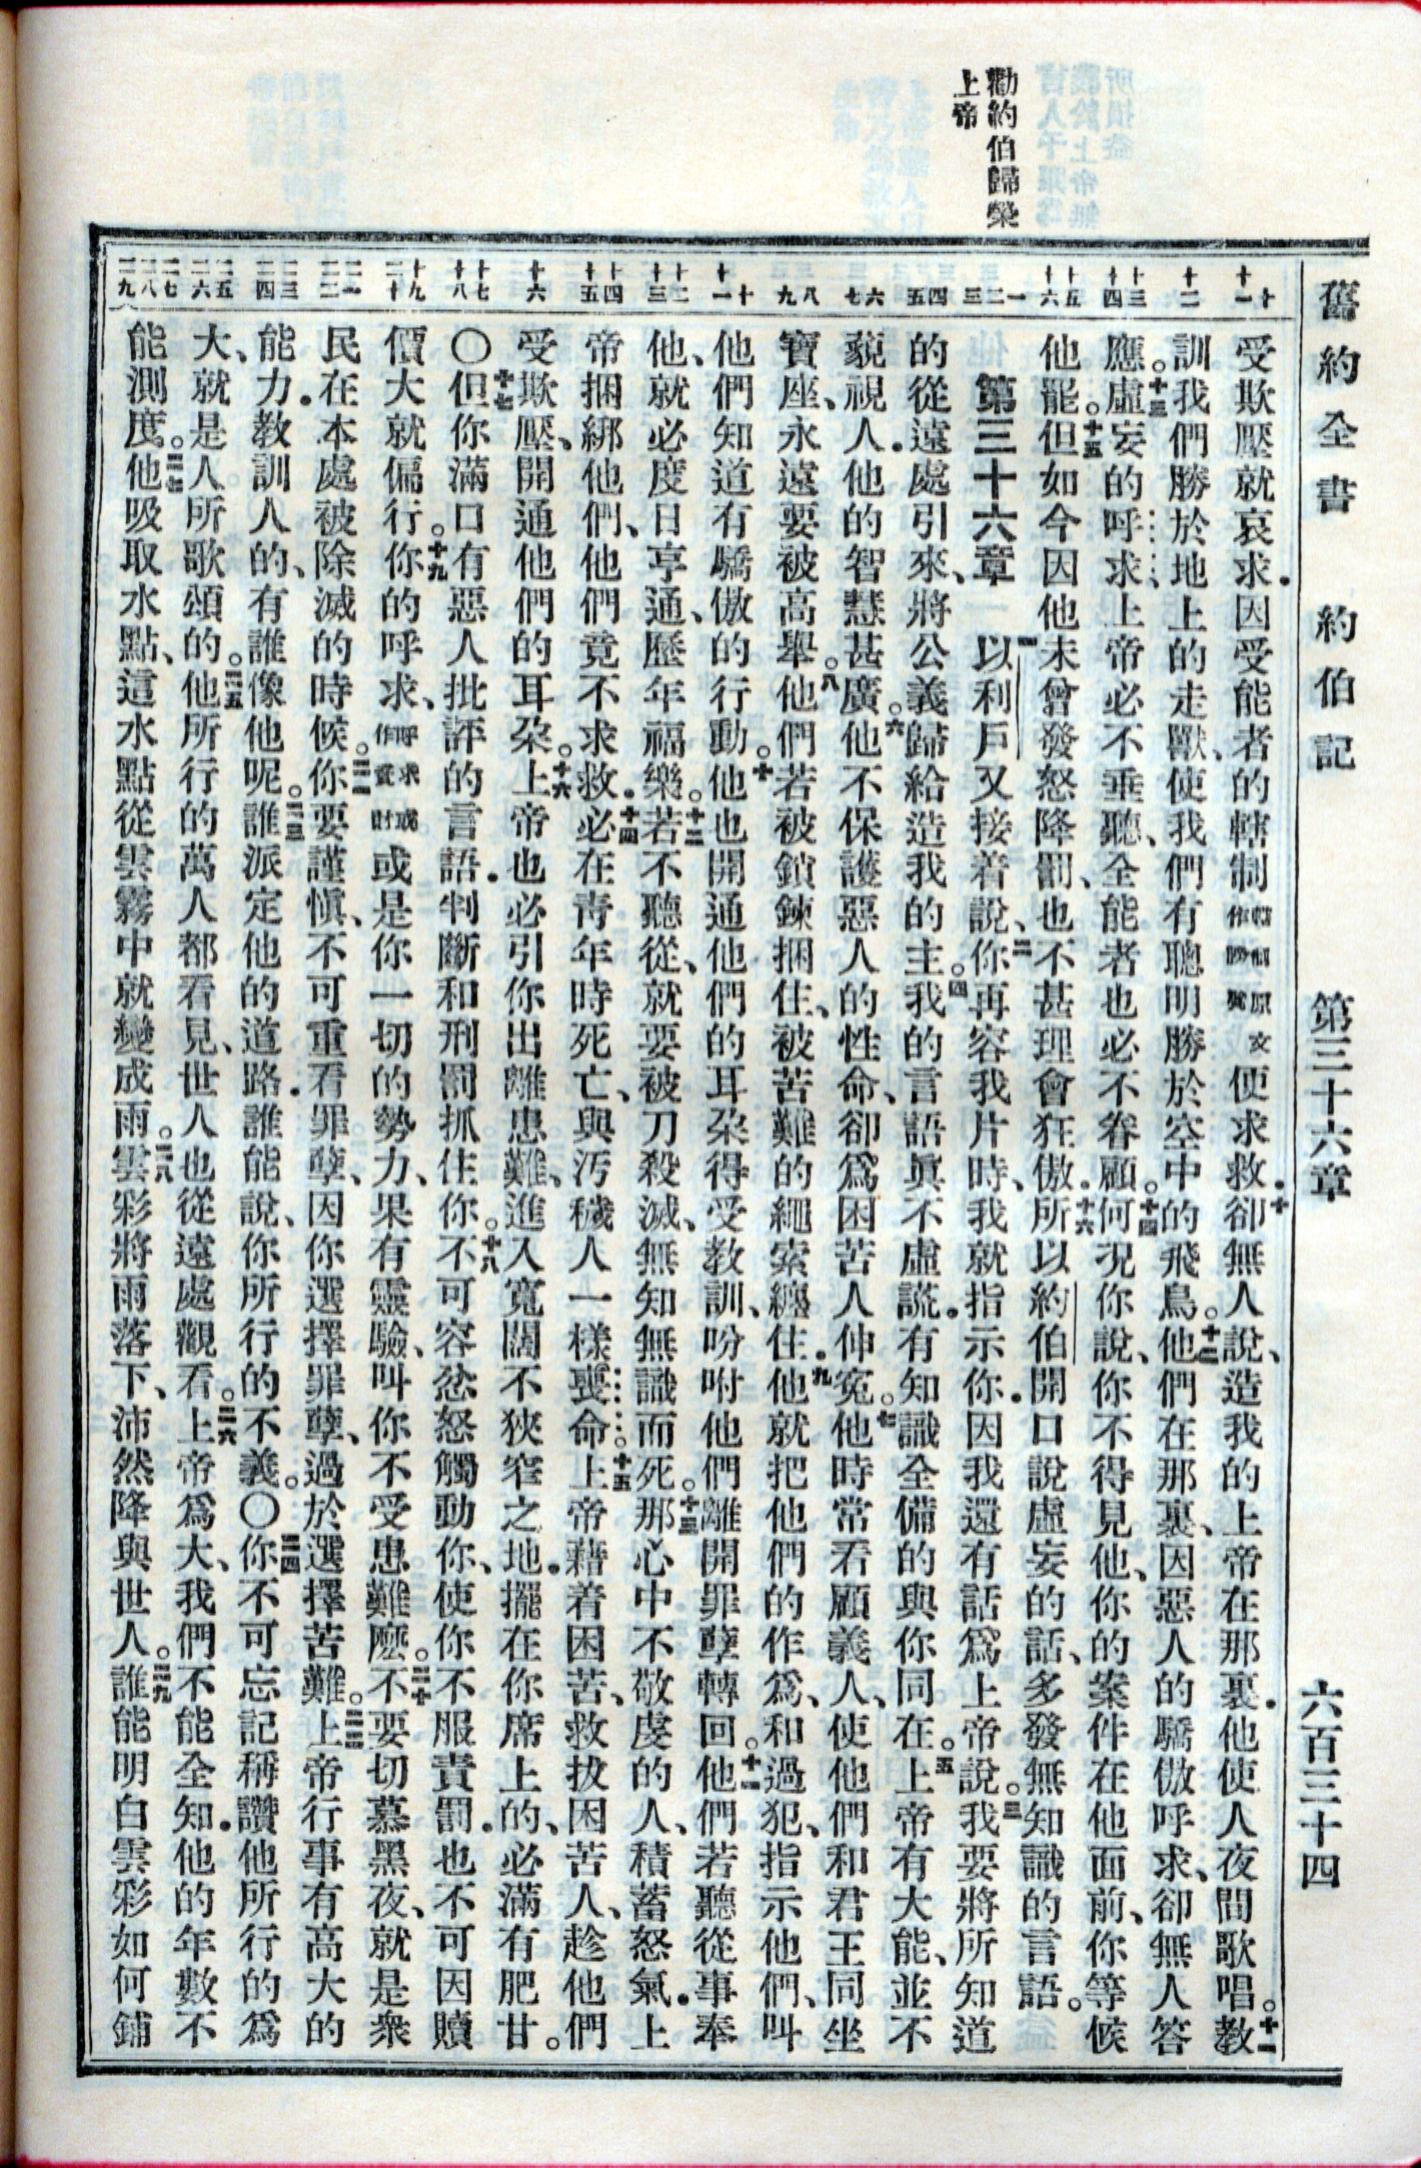 舊約全書　約伯記　第三十六章　六百三十四
勸約伯歸榮
上帝
十 十一
十二
十三 十四
十五 十六
一 二 三
四 五
六 七
八 九
十 十一
十二 十三
十四 十五
十六
十七 十八
十九 二十
二一 二二
二三 二四
二五 二六
二七 二八 二九
受欺壓就哀求．因受能者的轄制轄制原文作膀臂便求救．十卻無人說、造我的上帝在那裏．他使人夜間歌唱。十一教
訓我們勝於地上的走獸、使我們有聰明勝於空中的飛鳥。十二他們在那裏、因惡人的驕傲呼求、卻無人答
應。十三虛妄的呼求、上帝必不垂聽、全能者也必不眷顧。十四何况你說、你不得見他、你的案件在他面前、你等候
他罷。十五但如今因他未曾發怒降罰、也不甚理會狂傲．十六所以約伯開口說虛妄的話、多發無知識的言語。
第三十六章　一以利戶又接着說、二你再容我片時、我就指示你．因我還有話爲上帝說。三我要將所知道
的從遠處引來、將公義歸給造我的主。四我的言語眞不虛謊．有知識全備的與你同在。五上帝有大能、並不
藐視人．他的智慧甚廣。六他不保護惡人的性命、卻爲困苦人伸冤。七他時常看顧義人、使他們和君王同坐
寶座、永遠要被高舉。八他們若被鎖鍊捆住、被苦難的繩索纏住．九他就把他們的作爲、和過犯、指示他們、叫
他們知道有驕傲的行動。十他也開通他們的耳朶得受教訓、吩咐他們離開罪孽轉回。十一他們若聽從事奉
他、就必度日亨通、歷年福樂。十二若不聽從、就要被刀殺滅、無知無識而死。十三那心中不敬虔的人、積蓄怒氣．上
帝捆綁他們、他們竟不求救．十四必在青年時死亡、與汚穢人一樣喪命。十五上帝藉着困苦、救拔困苦人、趁他們
受欺壓、開通他們的耳朶。十六上帝也必引你出離患難、進入寬闊不狹窄之地．擺在你席上的、必滿有肥甘。
〇十七但你滿口有惡人批評的言語．判斷和刑罰抓住你。十八不可容忿怒觸動你、使你不服責罰．也不可因贖
價大就偏行。十九你的呼求、呼求或作貲財或是你一切的勢力、果有靈驗、叫你不受患難麽。二十不要切慕黑夜、就是衆
民在本處被除滅的時候。二一你要謹愼、不可重看罪孽、因你選擇罪孽、過於選擇苦難。二二上帝行事有高大的
能力．教訓人的、有誰像他呢。二三誰派定他的道路．誰能說、你所行的不義。〇二四你不可忘記稱讚他所行的爲
大、就是人所歌頌的。二五他所行的萬人都看見、世人也從遠處觀看。二六上帝爲大、我們不能全知．他的年數不
能測度。二七他吸取水點、這水點從雲霧中就變成雨。二八雲彩將雨落下、沛然降與世人。二九誰能明白雲彩如何鋪